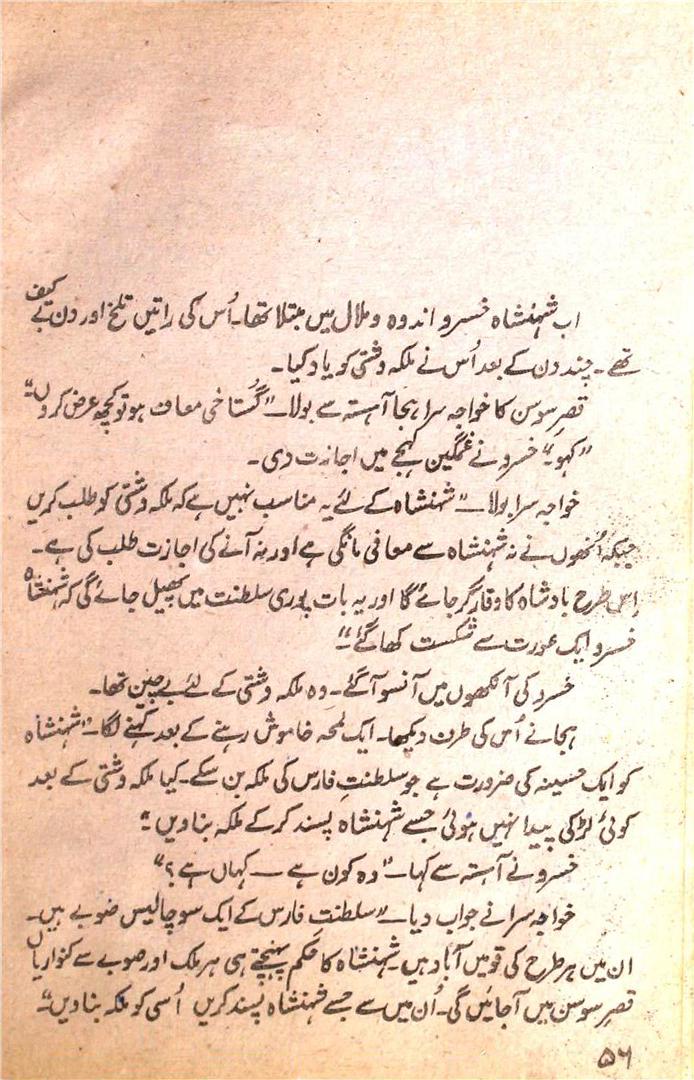 اب شہنشاہ خسرو اندوہ و ملال میں مبتلا تھا۔ اُس کی راتیں تلخ اور دن بے کیف
تھے۔ چند دن کے بعد اُس نے ملکہ وشتی کو یاد کیا۔
قصرِ سوسن کا خواجہ سرا ہجا آہستہ سے بولا۔ "گستاخی معاف ہو تو کچھ عرض کروں"
"کہو" خسرو نے غمگین لہجے میں اجازت دی۔
خواجہ سرا بولا۔ "شہنشاہ کے لئے یہ مناسب نہیں ہے کہ ملکہ وشتی کو طلب کریں
جبکہ اُنھوں نے نہ شہنشاہ سے معافی مانگی ہے اور نہ آنے کی اجازت طلب کی ہے۔
اِس طرح بادشاہ کا وقار گر جائے گا اور یہ بات پوری سلطنت میں پھیل جائے گی کہ شہنشاہ
خسرو ایک عورت سے شکست کھا گئے"
خسرو کی آنکھوں میں آنسو آ گئے۔ وہ ملکہ وشتی کے لئے بے چین تھا۔
ہجا نے اُس کی طرف دیکھا۔ ایک لمحہ خاموش رہنے کے بعد کہنے لگا۔ "شہنشاہ
کو ایک حسینہ کی ضرورت ہے جو سلطنتِ فارس کی ملکہ بن سکے۔ کیا ملکہ وشتی کے بعد
کوئی لڑکی پیدا نہیں ہوئی جسے شہنشاہ پسند کر کے ملکہ بنا دیں"
خسرو نے آہستہ سے کہا۔ "وہ کون ہے — کہاں ہے؟"
خواجہ سرا نے جواب دیا۔ "سلطنتِ فارس کے ایک سو چالیس صوبے ہیں۔
ان میں ہر طرح کی قومیں آباد ہیں۔ شہنشاہ کا حکم پہنچتے ہی ہر ملک اور صوبے سے کنواریاں
قصرِ سوسن میں آ جائیں گی۔ اُن میں سے جسے شہنشاہ پسند کریں اُسی کو ملکہ بنا دیں"
۵۶